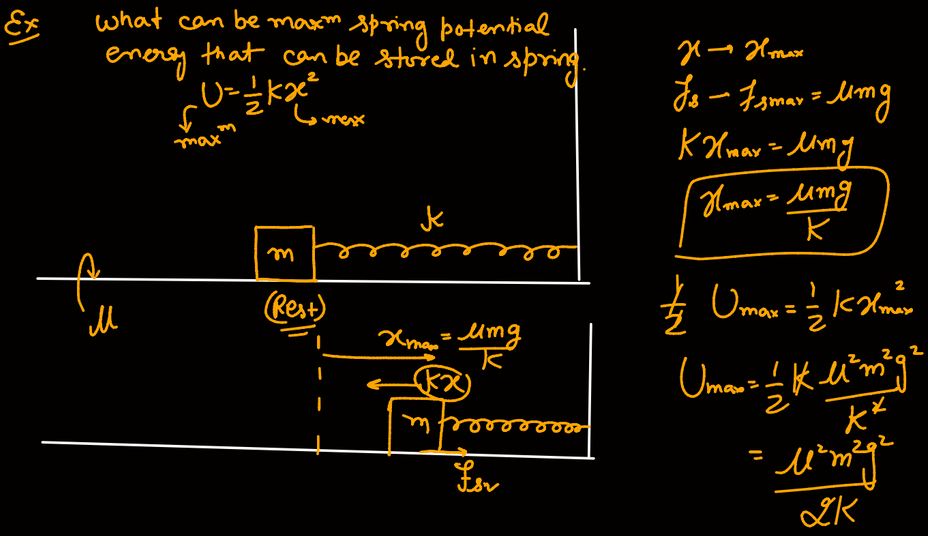 Ex what can be maxᵐ spring potential
energy that can be stored in spring.
U = 1/2 Kx²
maxᵐ
max
m
K
μ
(Rest)
x_max = μmg/K
Kx
m
f_sr
x → x_max
f_s → f_smax = μmg
K x_max = μmg
x_max = μmg/K
1/2 U_max = 1/2 K x_max²
U_max = 1/2 K μ²m²g²/K²
= μ²m²g²/2K